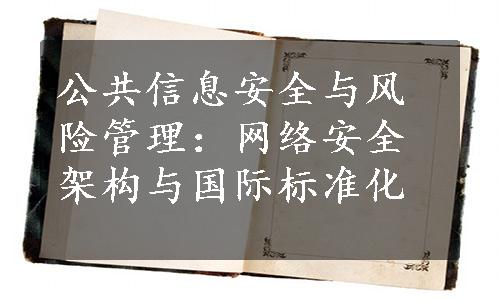 公共信息安全与风
险管理：网络安全
架构与国际标准化